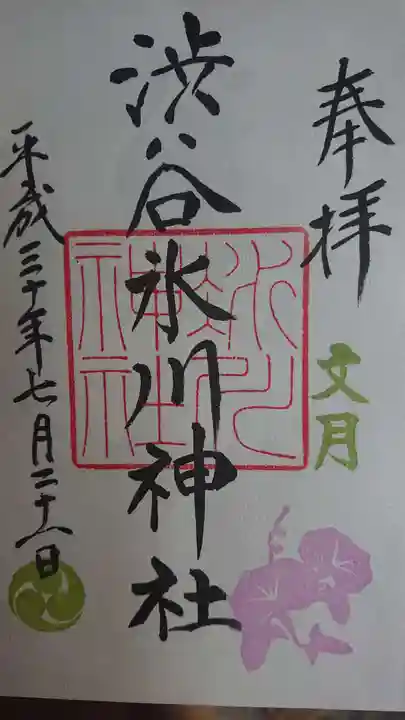 奉拝
文月
渋谷氷川神社
平成三十年七月二十八日